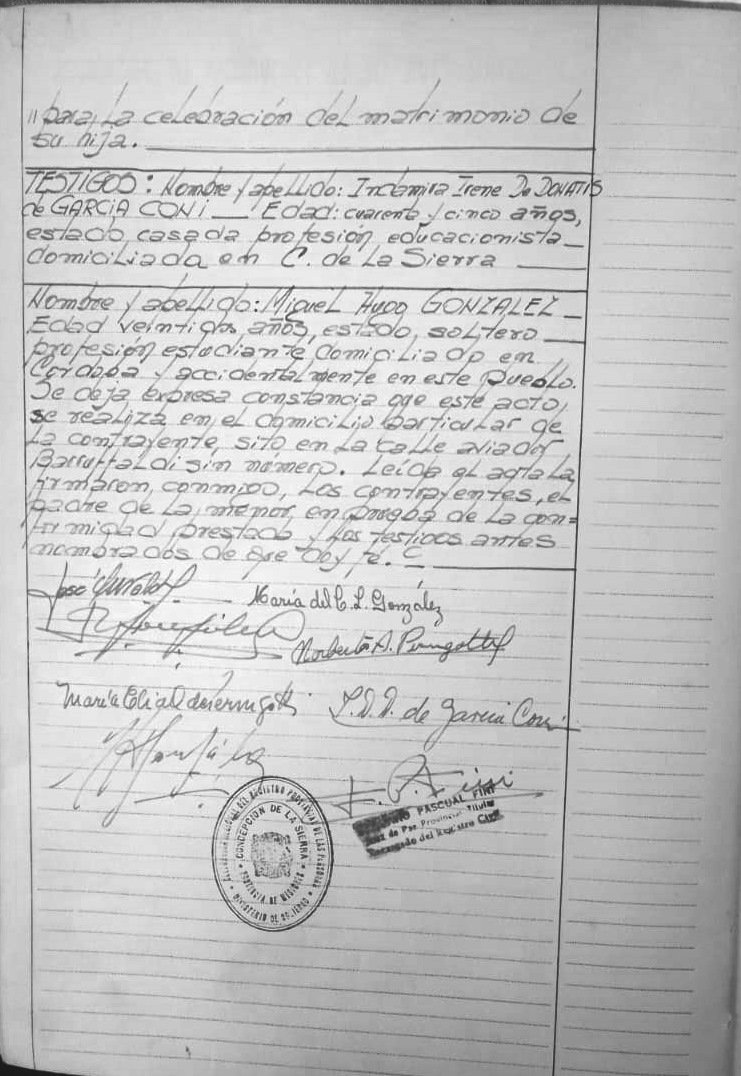 " para, La celebración del matrimonio de
su hija.
TESTIGOS: Nombre y apellido: Indamira Irene De DONATIS
de GARCIA CONI ___ Edad: cuarenta y cinco años,
estado, casada profesión, educacionista_
domiciliada en C. de La Sierra
Nombre y apellido: Miguel Hugo GONZALEZ_
Edad veintidos años, estado, soltero
profesión estudiante domiciliado en
Córdoba y accidentalmente en este Pueblo.
Se deja expresa constancia que este acto,
se realiza en, el domicilio particular de
La contrayente, sito en La calle aviador
Barruffaldi sin número. Leída el acta La
firmaron, conmigo, Los contrayentes, el
padre de La, menor, en prueba de La con=
formidad prestada y Los testigos antes
nombrados de que doy, fé.
José
María del C. L. González
Norberto A. Perugotti
María Elial de Perugotti
I. D. D. de Garcia Coni
González
F. P. Fini
PASCUAL FINI
Juez de Paz Provincial Titular
Encargado del Registro Civil
REGISTRO PROVINCIAL DE LAS PERSONAS
CONCEPCION DE LA SIERRA
PROVINCIA DE MISIONES
MINISTERIO DE GOBIERNO